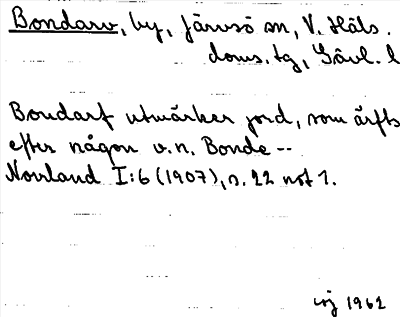 Bondarv, by, Järvsö sn, V. Häls.
doms. tg, Gävl. l
Bondarf utmärker jord, som ärfts
efter någon v. n. Bonde --
Norrland I:6 (1907), s. 22 not 1.
1962